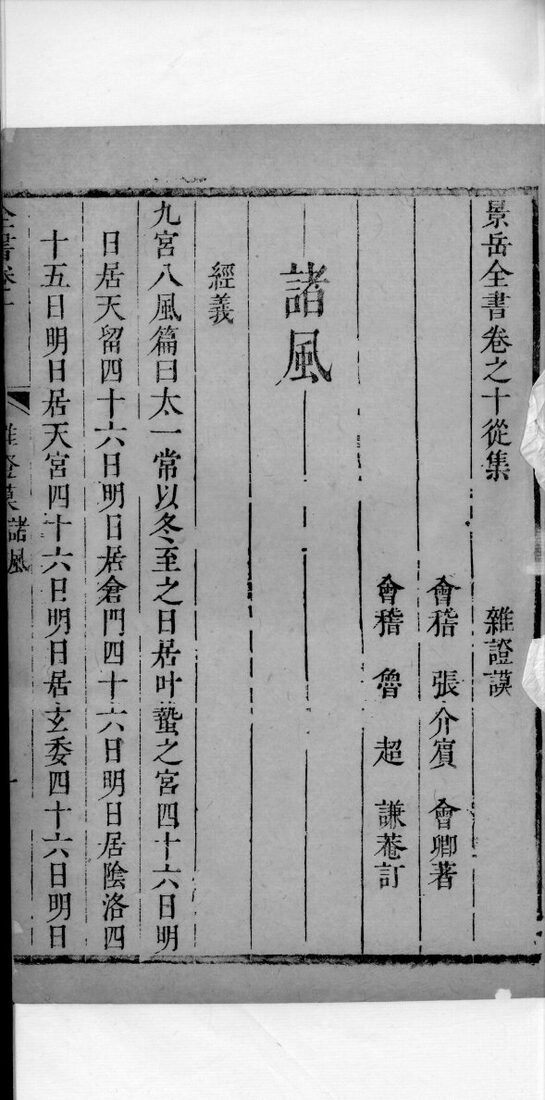 景岳全書卷之十從集 雜證謨
會稽 張介賔 會卿著
會稽 魯超 謙菴訂
諸風
經義
九宮八風篇曰太一常以冬至之日居叶蟄之宮四十六日明
日居天留四十六日明日居倉門四十六日明日居陰洛四
十五日明日居天宮四十六日明日居玄委四十六日明日
全書卷十 雜證謨 諸風 一